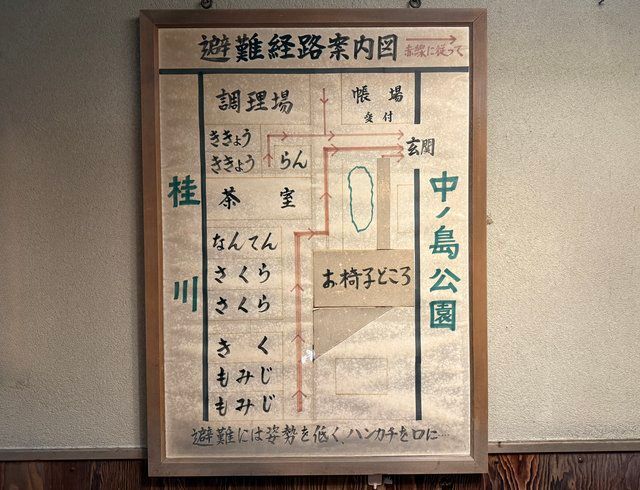 避難経路案内図
赤線に従って
調理場
帳場
受付
ききょう
ききょう
らん
玄関
茶室
桂川
中ノ島公園
なんてん
さくら
さくら
お椅子どころ
きく
もみじ
もみじ
避難には姿勢を低く、ハンカチを口に…